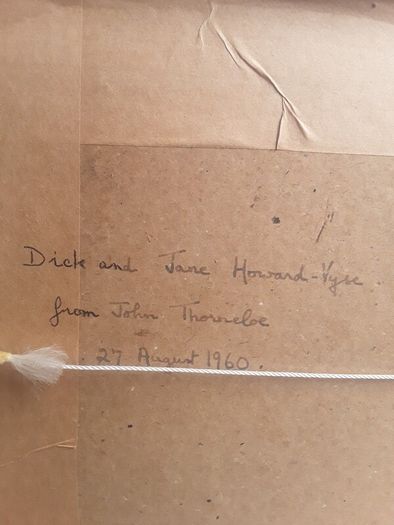 Dick and Jane Howard-Vyse
from John Thorneloe
27 August 1960.